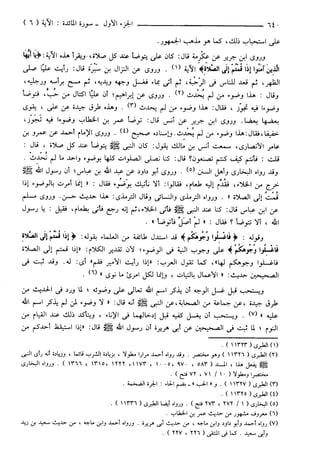 ٦٤٠ الجزء الأول ـ سورة المائدة : الآية ( ٦ )
على استحباب ذلك، كما هو مذهب الجمهور.
وروى ابن جرير عن عكرمة قال: كان على يتوضأ عند كل صلاة، ويقرأ هذه الآية: ﴿يا أيها
الذين آمنوا إذا قمتم إلى الصلاة﴾ الآية (١) . وروى عن النزال بن سبرة قال: رأيت عليًا صلى
الظهر، ثم قعد للناس فى الرحبة، ثم أتى بماء فغسل وجهه ويديه، ثم مسح برأسه ورجليه،
وقال : هذا وضوء من لم يُحْدث (٢) . وروى عن إبراهيم: أن عليًا اكتال من حب، فتوضأ
وضوءا فيه تجوز ، فقال: هذا وضوء من لم يحدث (٣) . وهذه طرق جيدة عن على ، يقوى
بعضها بعضا. وروى ابن جرير عن أنس قال: توضأ عمر بن الخطاب وضوءا فيه تجوز،
خفيفا،فقال:هذا وضوء من لم يحدث. وإسناده صحيح (٤) . وروى الإمام أحمد عن عمرو بن
عامر الأنصارى، سمعت أنس بن مالك يقول: كان النبى ﷺ يتوضأ عند كل صلاة ، قال :
قلت : فأنتم كيف كنتم تصنعون؟ قال: كنا نصلى الصلوات كلها بوضوء واحد ما لم نُحدث .
وقد رواه البخارى وأهل السنن (٥) . وروى أبو داود عن عبد الله بن عباس؛ أن رسول الله ﷺ
خرج من الخلاء، فقُدِّم إليه طعام، فقالوا: ألا نأتيك بوضوء فقال : «إنما أمرت بالوضوء إذا
قمت إلى الصلاة» . ورواه الترمذى والنسائى وقال الترمذى: هذا حديث حسن. وروى مسلم
عن ابن عباس قال: كنا عند النبى ﷺ فأتى الخلاء،ثم إنه رجع فأتى بطعام، فقيل : يا رسول
الله ، ألا تتوضأ ؟ فقال : «لم أصل فأتوضأ» .
وقوله : ﴿فاغسلوا وجوهكم﴾ قد استدل طائفة من العلماء بقوله: ﴿إذا قمتم إلى الصلاة
فاغسلوا وجوهكم﴾ على وجوب النية فى الوضوء؛ لأن تقدير الكلام: «إذا قمتم إلى الصلاة
فاغسلوا وجوهكم لها»، كما تقول العرب: «إذا رأيت الأمير فقم» أى: له. وقد ثبت فى
الصحيحين حديث: «الأعمال بالنيات ، وإنما لكل امرئ ما نوى» (٦) .
ويستحب قبل غسل الوجه أن يذكر اسم الله تعالى على وضوئه ؛ لما ورد فى الحديث من
طرق جيدة ،عن جماعة من الصحابة،عن النبى ﷺ أنه قال: «لا وضوء لمن لم يذكر اسم الله
عليه» (٧) . ويستحب أن يغسل كفيه قبل إدخالهما فى الإناء ، ويتأكد ذلك عند القيام من
النوم ؛ لما ثبت فى الصحيحين عن أبى هريرة أن رسول الله ﷺ قال: «إذا استيقظ أحدكم من
(١) الطبرى ( ١١٣٢٣ ) .
(٢) الطبرى ( ١١٣٢٦ ) وهو مختصر . وقد رواه أحمد مرارا مطولا ، بزيادة الشرب قائما ، وزيادة أنه رأى النبى
ﷺ يفعل هذا ، المسند ( ٥٨٣ ، ٩٧٠ ، ١٠٠٥ ، ١١٧٣ ، ١٢٢٢ ، ١٣١٥ ، ١٣٦٦ ) . ورواه البخارى
مختصرا ومطولا ( ١٠ / ٧١ ، ٧٢ فتح ) .
(٣) الطبرى ( ١١٣٢٧ ) . و «الحب» ـ بضم الحاء : الجرة الضخمة .
(٤) الطبرى ( ١١٣٢٥ ) .
(٥) البخارى ( ١ / ٢٧٢ ، ٢٧٣ فتح ) . ورواه أيضا الطبرى ( ١١٣٣٦ ) .
(٦) معروف مشهور من حديث عمر بن الخطاب .
(٧) رواه أحمد وأبو داود وابن ماجه ، من حديث أبى هريرة . ورواه أحمد وابن ماجه ، من حديث سعيد بن زيد
وأبى سعيد . كما فى المنتقى ( ٢٢٦ ، ٢٢٧ ) .